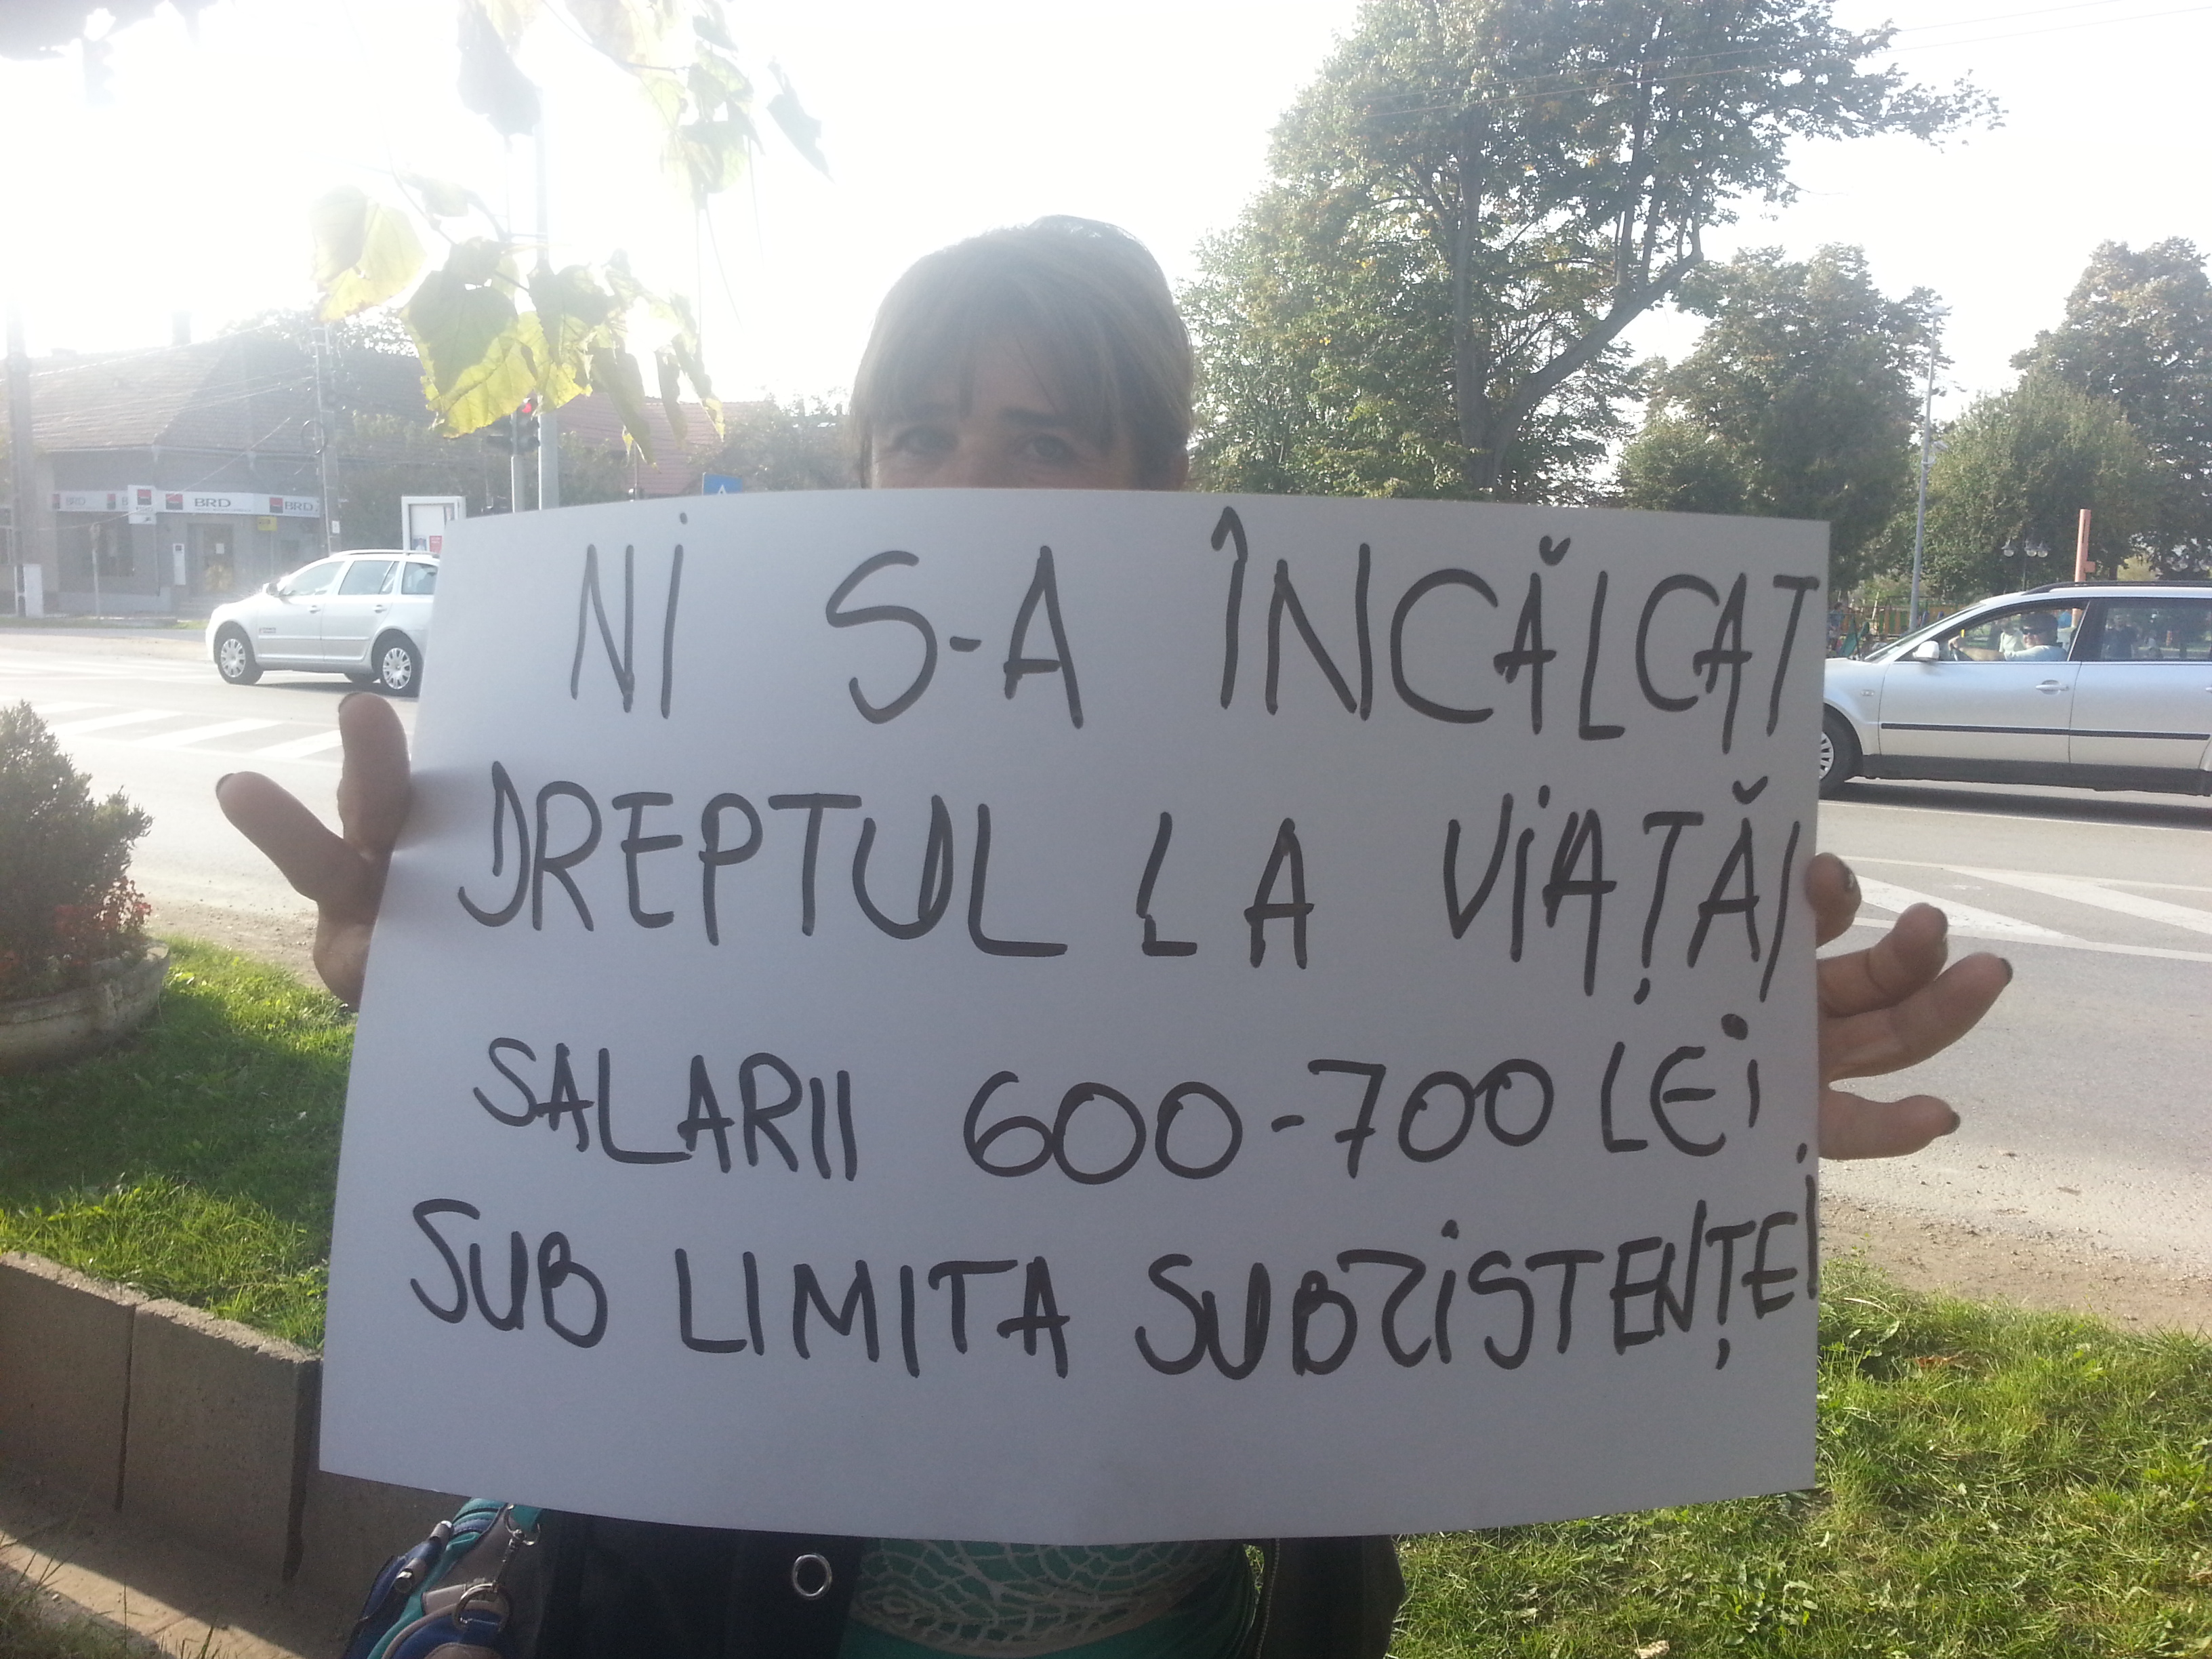 BRD BRD BRD
NI S-A ÎNCĂLCAT
DREPTUL LA VIAȚĂ,
SALARII 600-700 LEI,
SUB LIMITA SUBZISTENȚEI